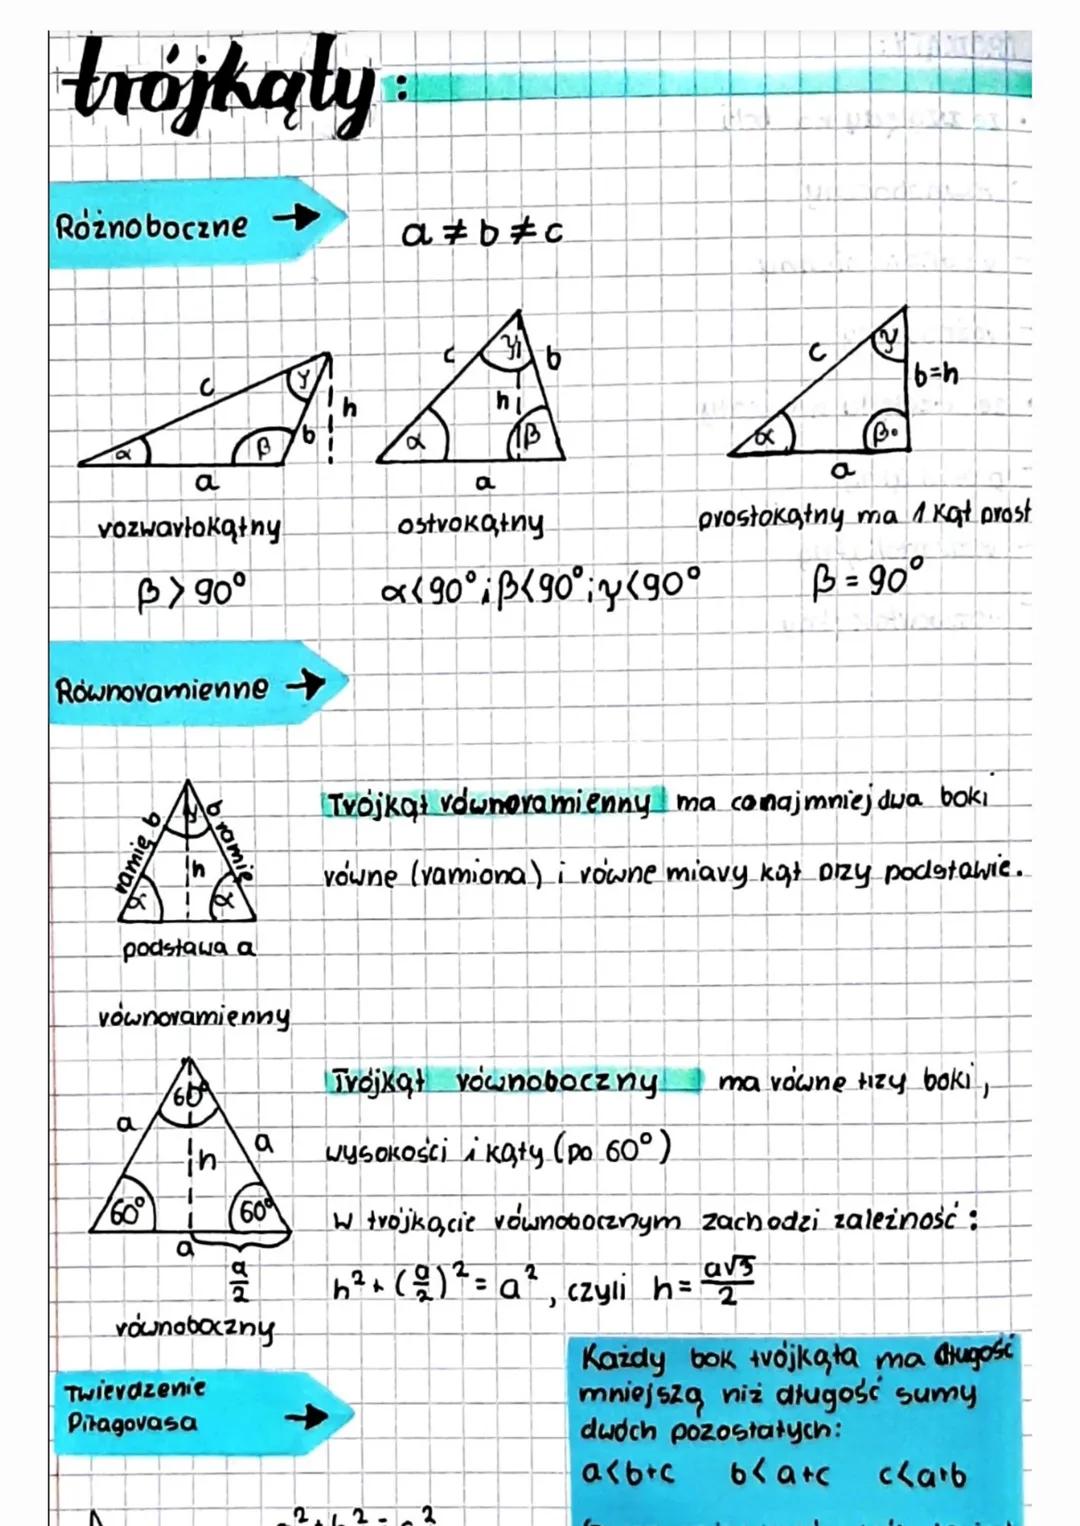 trójkąty:
Różnoboczne →
a ≠ b ≠ c
c y h α β b a
c y b h α β a
c y b=h α β a
rozwartokątny
ostrokątny
prostokątny ma 1 kąt prost
β > 90°
α<90°; β<90°; γ<90°
β = 90°
Równoramienne →
ramię b
y
b ramię
h
α α
podstawa a
Trójkąt równoramienny ma conajmniej dwa boki
równe (ramiona) i równe miary kąt przy podstawie.
równoramienny
60°
a a
h
60° 60°
a
a/2
równoboczny
Trójkąt równoboczny ma równe trzy boki,
wysokości i kąty (po 60°)
w trójkącie równobocznym zachodzi zależność:
h² + (a/2)² = a², czyli h = a√3/2
Twierdzenie
Pitagorasa →
Każdy bok trójkąta ma długość
mniejszą niż długość sumy
dwóch pozostałych:
a<b+c b<a+c c<a+b